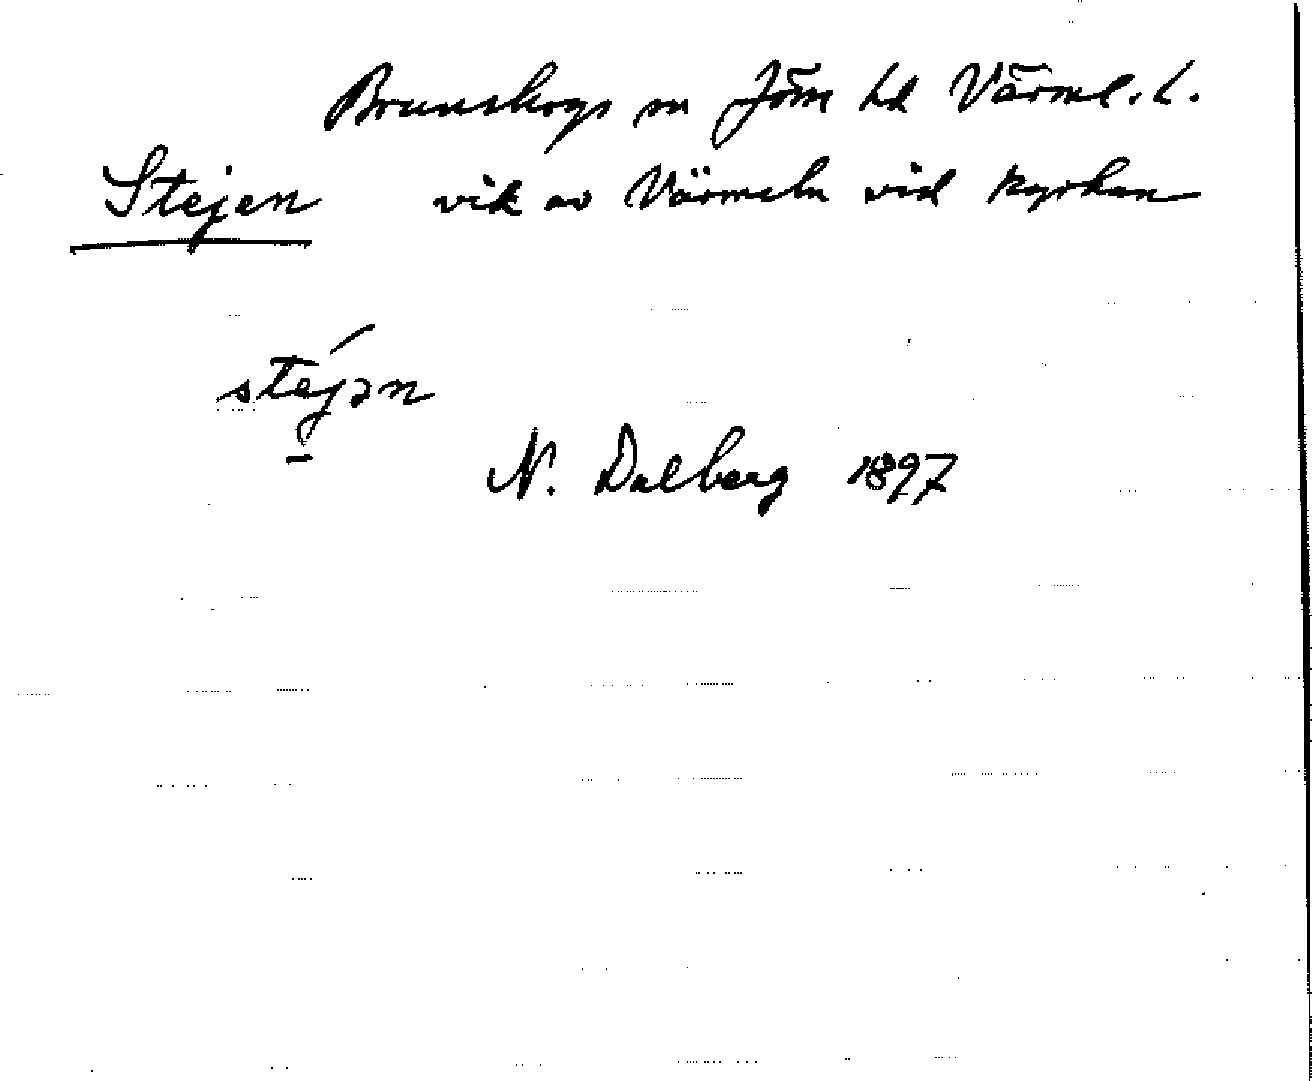 Brunskogs sn Jöss hd Värml. l.
Stejen vik av Värmeln vid kyrkan
stejən
N. Dalberg 1897